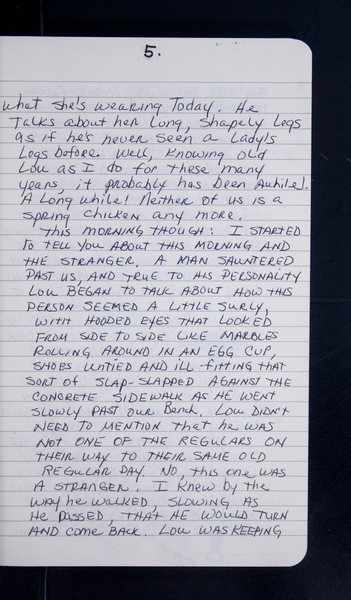 5.
what she's wearing Today. He
Talks about her Long, Shapely Legs
as if he's never seen a Lady's
Legs before. Well, Knowing old
Lou as I do for these many
years, it probably has been awhile!
A Long while! Neither of us is a
Spring Chicken any more.
This morning though! I STARTED
to TELL YOU ABOUT THIS MORNING AND
THE STRANGER. A MAN SAUNTERED
PAST US, AND TRUE TO HIS PERSONALITY
LOU BEGAN TO TALK ABOUT HOW THIS
PERSON SEEMED A LITTLE SURLY,
WITH HOODED EYES THAT LOOKED
FROM SIDE TO SIDE LIKE MARBLES
ROLLING AROUND IN AN EGG CUP,
SHOES UNTIED AND ILL-FITTING THAT
SORT OF SLAP-SLAPPED AGAINST THE
CONCRETE SIDEWALK AS HE WENT
SLOWLY PAST OUR BENCH. LOU DIDN'T
NEED TO MENTION THAT HE WAS
NOT ONE OF THE REGULARS ON
THEIR WAY TO THEIR SAME OLD
REGULAR DAY. NO, THIS ONE WAS
A STRANGER. I KNEW BY THE
WAY HE WALKED, SLOWING AS
HE PASSED, THAT HE WOULD TURN
AND COME BACK. LOU WAS KEEPING